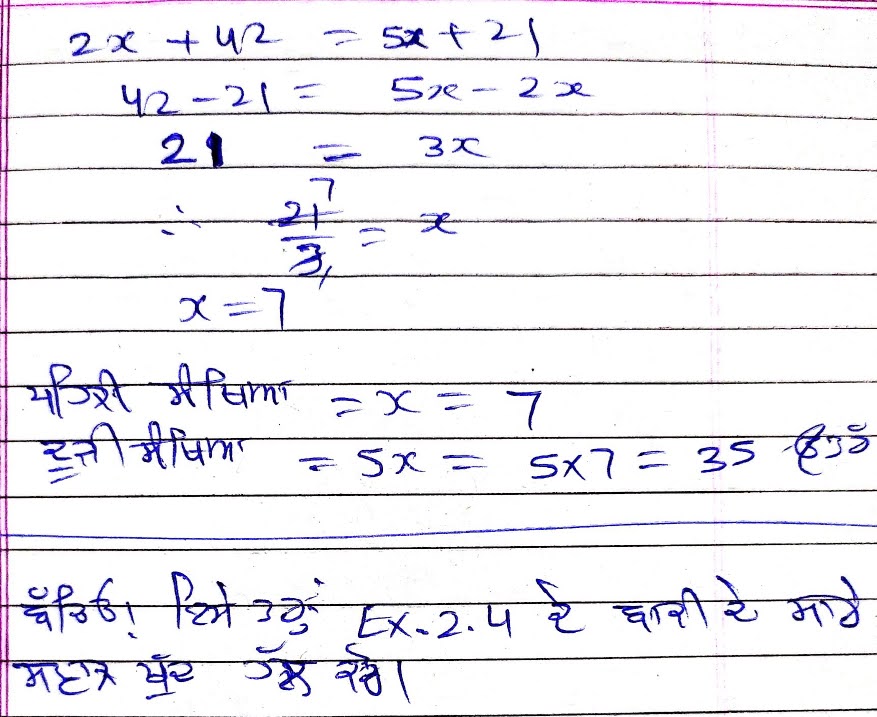 2x + 42 = 5x + 21
42 - 21 = 5x - 2x
21 = 3x
∴ 21/3 = x
7
x = 7
ਪਹਿਲੀ ਸੰਖਿਆ = x = 7
ਦੂਜੀ ਸੰਖਿਆ = 5x = 5×7 = 35 ਉੱਤਰ
ਬੱਚਿਓ! ਇਸੇ ਤਰ੍ਹਾਂ Ex-2.4 ਦੇ ਬਾਕੀ ਦੇ ਸਾਰੇ
ਸਵਾਲ ਖੁੱਦ ਹੱਲ ਕਰੋ।